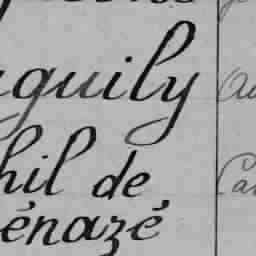 guily
hil de
énazé